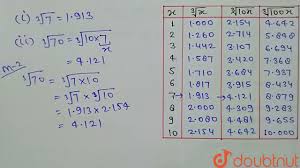 (i) ∛7 = 1.913
(ii) ∛70 = ∛10×7
x
= 4.121
m-2
∛70 = ∛7×10
= ∛7 × ∛10
= 1.913 × 2.154
= 4.121
doubtnut
x ∛x ∛10x ∛100x
1 1.000 2.154 4.642
2 1.260 2.714 5.848
3 1.442 3.107 6.694
4 1.587 3.420 7.368
5 1.710 3.684 7.937
6 1.817 3.915 8.434
7 → 1.913 → 4.121 8.879
8 2.000 4.309 9.283
9 2.080 4.481 9.655
10 2.154 4.642 10.000